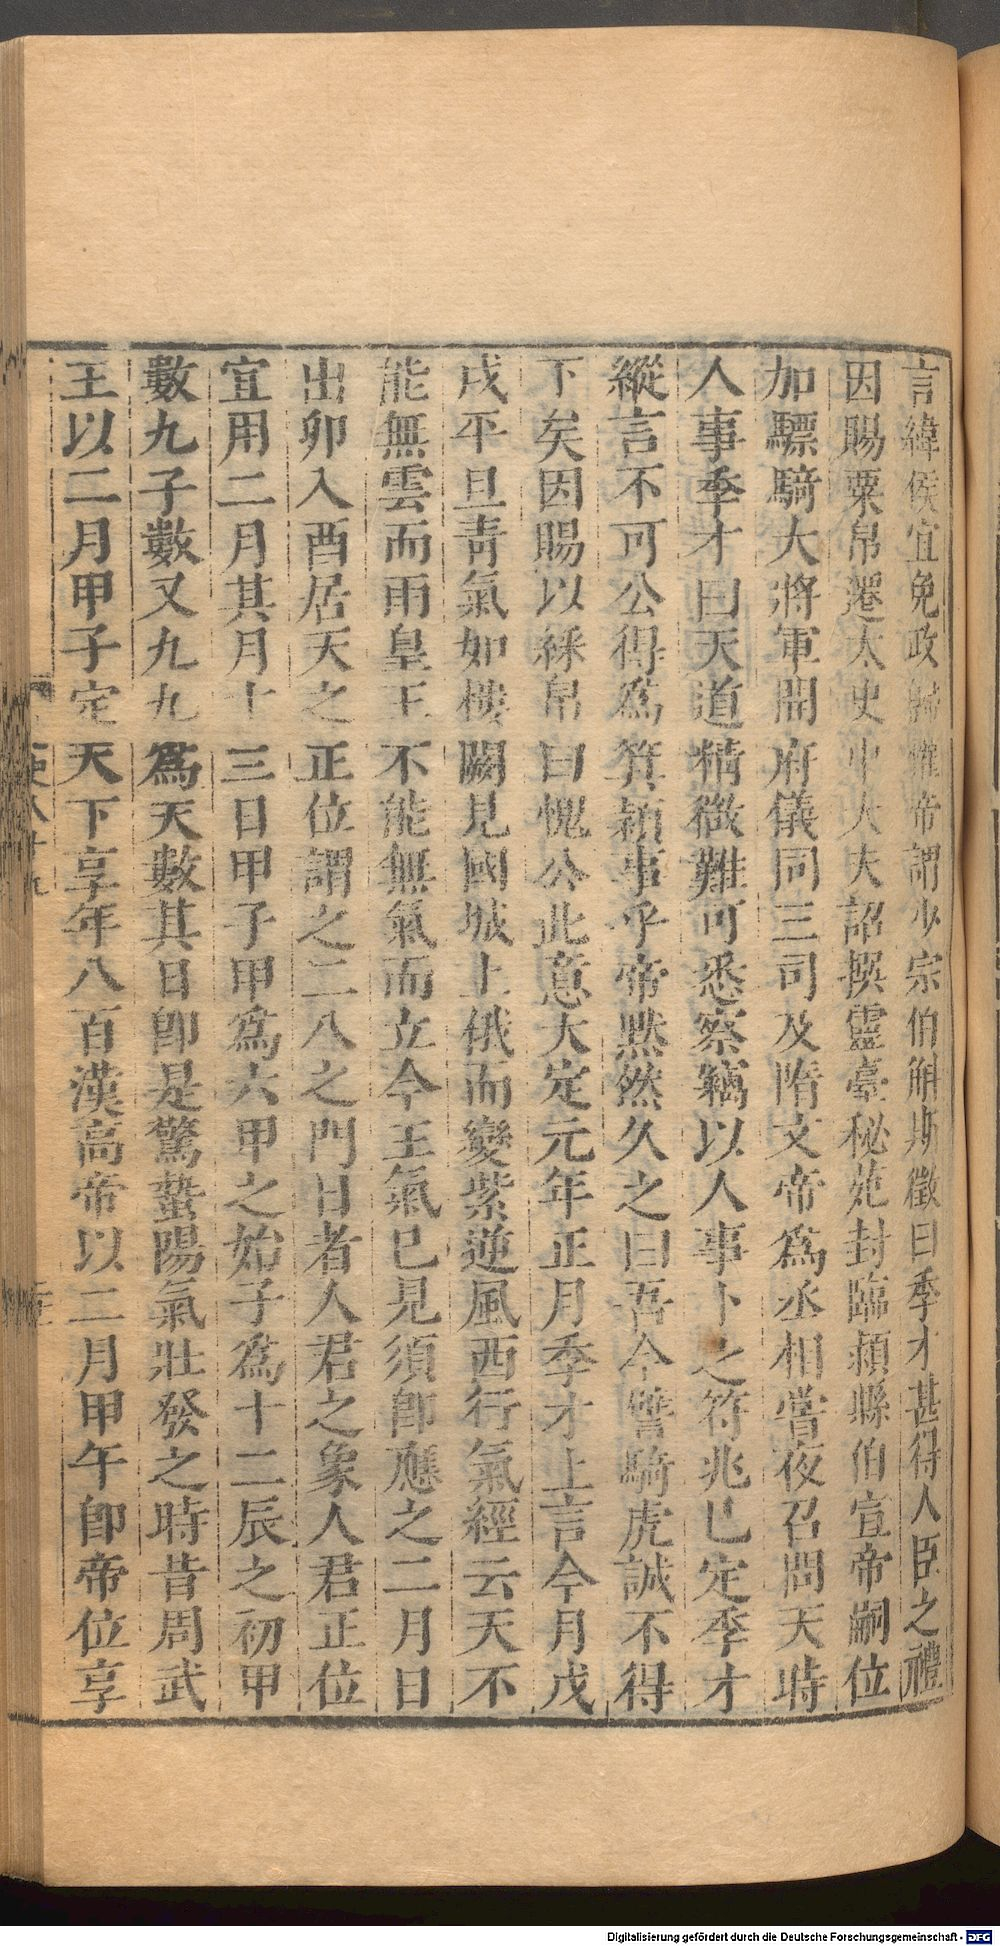 言緯候宜免政歸權帝謂少宗伯斛斯徵曰季才甚得人臣之禮
因賜粟帛遷太史中大夫詔撰靈臺秘苑封臨潁縣伯宣帝嗣位
加驃騎大將軍開府儀同三司及隋文帝爲丞相嘗夜召問天時
人事季才曰天道精微難可悉察竊以人事卜之符兆已定季才
縱言不可公得爲箕潁事乎帝黙然久之曰吾今譬騎虎誠不得
下矣因賜以綵帛曰愧公此意大定元年正月季才上言今月戊
戌平旦靑氣如樓闕見國城上俄而變紫逆風西行氣經云天不
能無雲而雨皇王不能無氣而立今王氣巳見須卽應之二月日
出卯入酉居天之正位謂之二八之門日者人君之象人君正位
宜用二月其月十三日甲子甲爲六甲之始子爲十二辰之初甲
數九子數又九九爲天數其日卽是驚蟄陽氣壯發之時昔周武
王以二月甲子定天下享年八百漢高帝以二月甲午卽帝位享
Digitalisierung gefördert durch die Deutsche Forschungsgemeinschaft - DFG